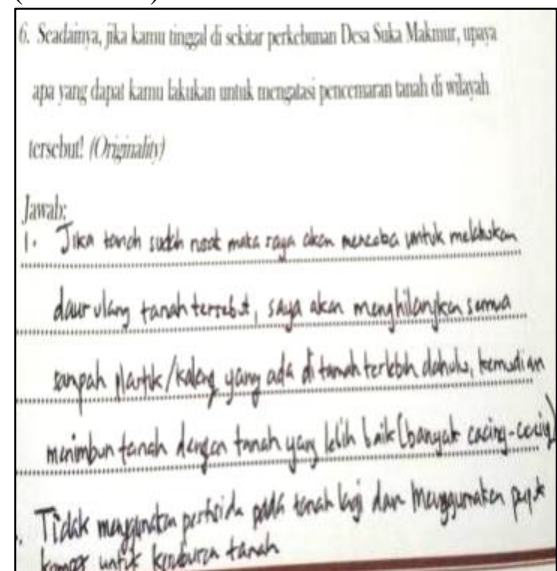 6. Seadainya, jika kamu tinggal di sekitar perkebunan Desa Suka Makmur, upaya
apa yang dapat kamu lakukan untuk mengatasi pencemaran tanah di wilayah
tersebut! (Originality)
Jawab:
1. Jika tanah sudah rusak maka saya akan mencoba untuk melakukan
daur ulang tanah tersebut, saya akan menghilangkan semua
sampah plastik/kaleng yang ada di tanah terlebih dahulu, kemudian
menimbun tanah dengan tanah yang lebih baik (banyak cacing-cacing)
. Tidak menggunakan pestisida pada tanah lagi dan menggunakan pupuk
untuk kesuburan tanah